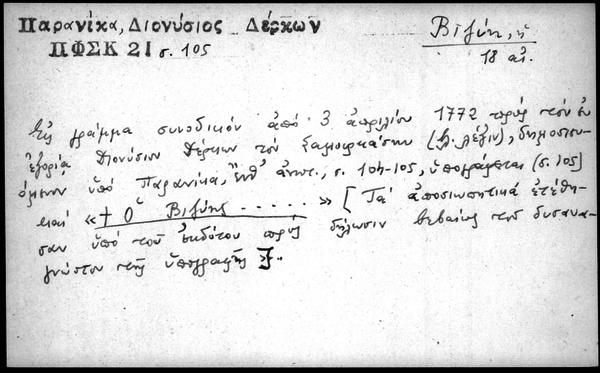 Παρανίκα, Διονύσιος Δέρκων
ΠΦΣΚ 21 σ. 105
Βιζύη, ἡ
18 αἰ.
Εἰς γράμμα συνοδικόν ἀπό 3 ἀπριλίου 1772 πρός τόν ἐν
ἐξορίᾳ Διονύσιον Δέρκων τόν (βλ. λέξιν), δημοσιευ-
όμενον ὑπό Παρανίκα, ἔνθ' ἀνωτ., σ. 104-105, ὑπογράφεται (σ. 105)
καί «† Ὁ Βιζύης . . . . . . » [Τά ἀποσιωπητικά ἐτέθη-
σαν ὑπό τοῦ ἐκδότου πρός δήλωσιν βεβαίως τοῦ δυσανα-
γνώστου τῆς ὑπογραφῆς].